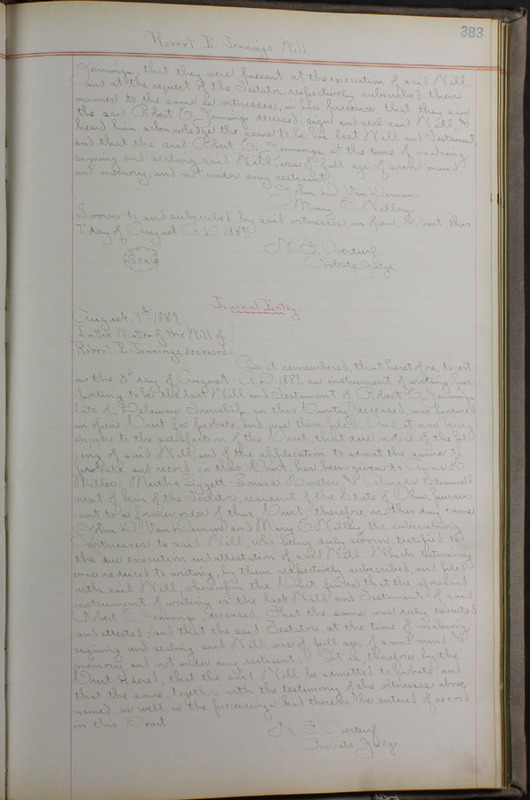 383
Robert B. Jennings Will
Jennings, that they were present at the execution of said Will
and at the request of the Testator, respectively subscribed their
names to the same as witnesses, in his presence that they saw
the said Robert E. Jennings deceased, sign and seal said Will, &
heard him acknowledge the same to be his last Will and Testament
and that the said Robert E. Jennings at the time of making
signing and sealing said Will, was of full age of sound mind
and memory, and not under any restraint.
John D. Van Deman
Mary E.
Sworn to and subscribed by said witnesses in open Court, this
7th day of August A.D. 1889
Seal
Probate Judge
Journal Entry
August 7th 1889
In the Matter of the Will of
Robert B. Jennings, deceased.
Be it remembered, that heretofore, to wit
on the 3rd day of August A.D. 1889 an instrument of writing pur-
porting to be the last Will and Testament of Robert E. Jennings
late of Delaware Township, in this County deceased, was produced
in open Court for probate, and was then filed. And, it now being
shown to the satisfaction of the Court, that due notice of the fil-
ing of said Will, and of the application to admit the same to
probate and record in this Court, has been given to
Martha Louisa
next of kin of the Testator, resident of the State of Ohio, pursu-
ant to a former order of this Court, therefore, on this day came
John D. Van Deman and Mary E. the subscribing
witnesses to said Will, who being duly sworn testified to
the due execution and attestation of said Will. Which testimony
was reduced to writing, by them respectively subscribed and filed
with said Will, whereupon the Court finds that the aforesaid
instrument of writing is the last Will and Testament of said
Robert E. Jennings, deceased. That the same was duly executed
and attested; and that the said Testator, at the time of making,
signing and sealing said Will, was of full age, of sound mind &
memory and not under any restraint. It is, therefore, by the
Court ordered, that the said Will be admitted to probate, and
that the same, together with the testimony of the witnesses above
named, as well as the proceedings had thereon, be entered of record
in this Court.
Probate Judge